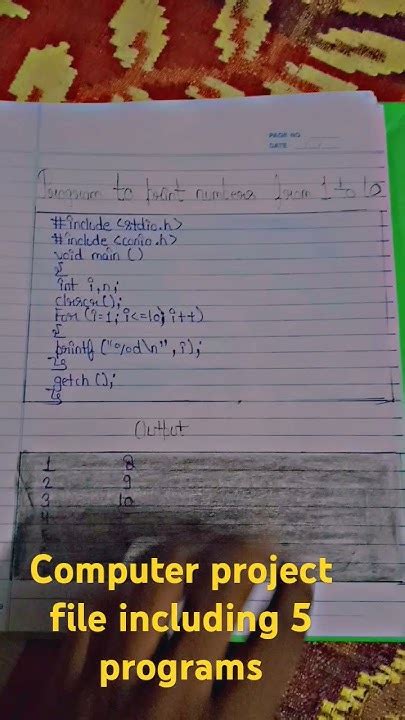 PAGE NO
DATE
Program to print numbers from 1 to 10
#include <stdio.h>
#include <conio.h>
void main ()
{
int i,n;
clrscr();
For (i=1; i<=10; i++)
{
printf ("%d\n", i);
}
getch ();
}
Output
1 8
2 9
3 10
4
5
Computer project
file including 5
programs